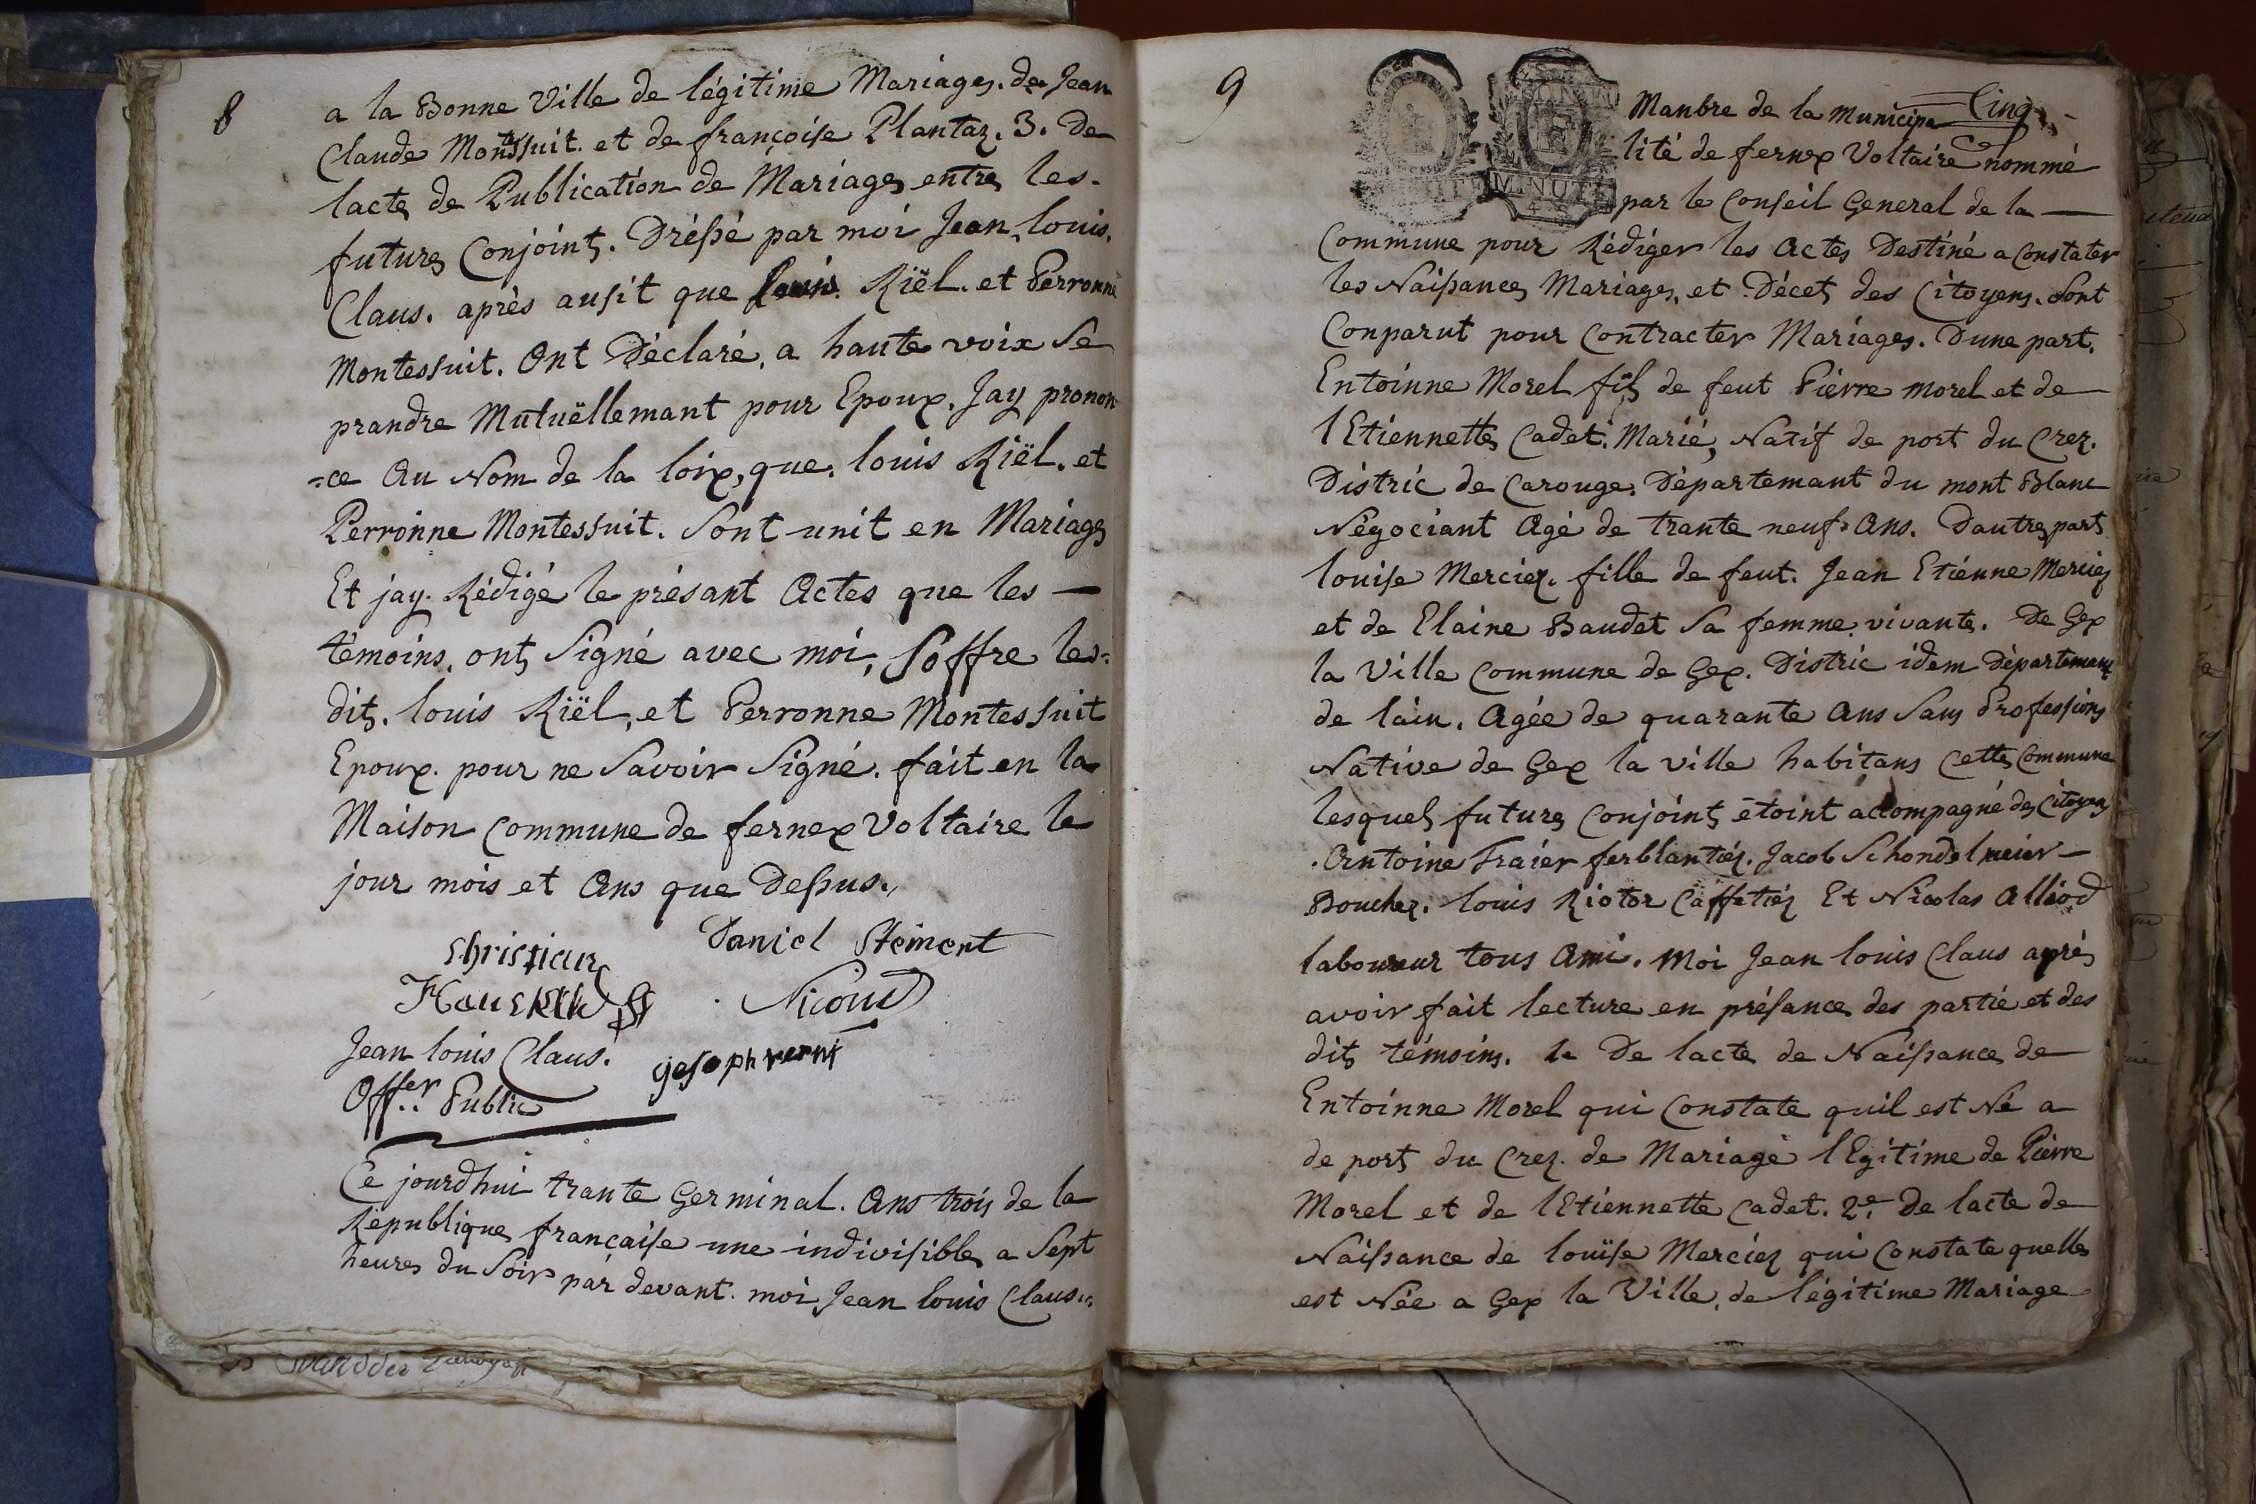 8
a la Bonne Ville de légitime Mariages. de Jean
Claude Montssuit. et de françoise Plantaz. 3. De
lacte de Publication de Mariages entre les.
futures Conjoint. Dréssé par moi Jean, louis,
Claus. après ausit que louis. Riël. et Perronne
Montessuit. Ont Déclaré, a haute voix Se
prandre Mutuëllemant pour Epoux. Jay pronon
=ce Au Nom de la loix, que, louis Riël. et
Perronne Montessuit. Sont unit en Mariage
Et jay. Rédigé le présant Actes que les —
témoins, ont Signé avec moi, Soffre les=
dit. louis Riël, et Perronne Montessuit
Epoux. pour ne Savoir Signé. fait en la
Maison Commune de fernex Voltaire le
jour mois et Ans que Dessus.,
Christian
Daniel Steiment
Nicoud
Jean louis Claus.
gosoph verni
Offer. Public
Ce jourdhui trante Germinal. Ans trois de la
République française une indivisible a Sept
heures du Soir par devant. moi Jean louis Claus..
9
MINUTE
Manbre de la Municipa Cinq
lité de fernex Voltaire nommé
par le Conseil General de la —
Commune pour Rédiger les Actes Destiné a Constater
les Naissances Mariages, et Décet des Citoyens. Sont
Conparut pour Contracter Mariages. Dune part.
Entoinne Morel fils de feut Piérre Morel et de
lEtiennette Cadet. Marié, Natif de port du Crez.
Distric de Carouge. Départemant du mont Blanc
Négociant Agé de trante neuf Ans. Dautre part
louise Merciez. fille de feut. Jean Etiénne Merciez
et de Elaine Baudet Sa femme vivante. De Gex
la Ville Commune de Gex. Distric idem Départemant
de lain. Agée de quarante Ans Sans Professions
Native de Gex la ville habitans Cette Commune
lesquels futures Conjoint étoint accompagné des Citoyens
. Antoine Fraier ferblantiéz. Jacob Schondelmeier —
Bouchez. louis Riotor Caffetiéz Et Nicolas Alliod
laboureur tous Ami. Moi Jean louis Claus après
avoir fait lecture en présance des partie et des
dit témoins. 1. De lacte de Naissance de
Entoinne Morel qui Constate quil est Né a
de port du Crez. de Mariage lEgitime de Piérre
Morel et de lEtiennette Cadet. 2e. De lacte de
Naissance de louïse Merciez qui Constate quelle
est Née a Gex la Ville, de légitime Mariage